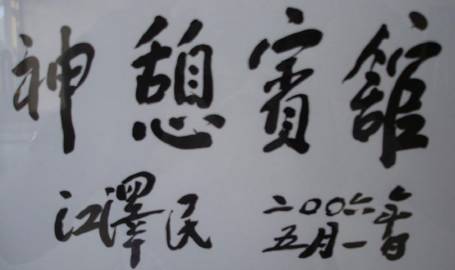 神憩賓舘
江澤民
二〇〇六年
五月一日